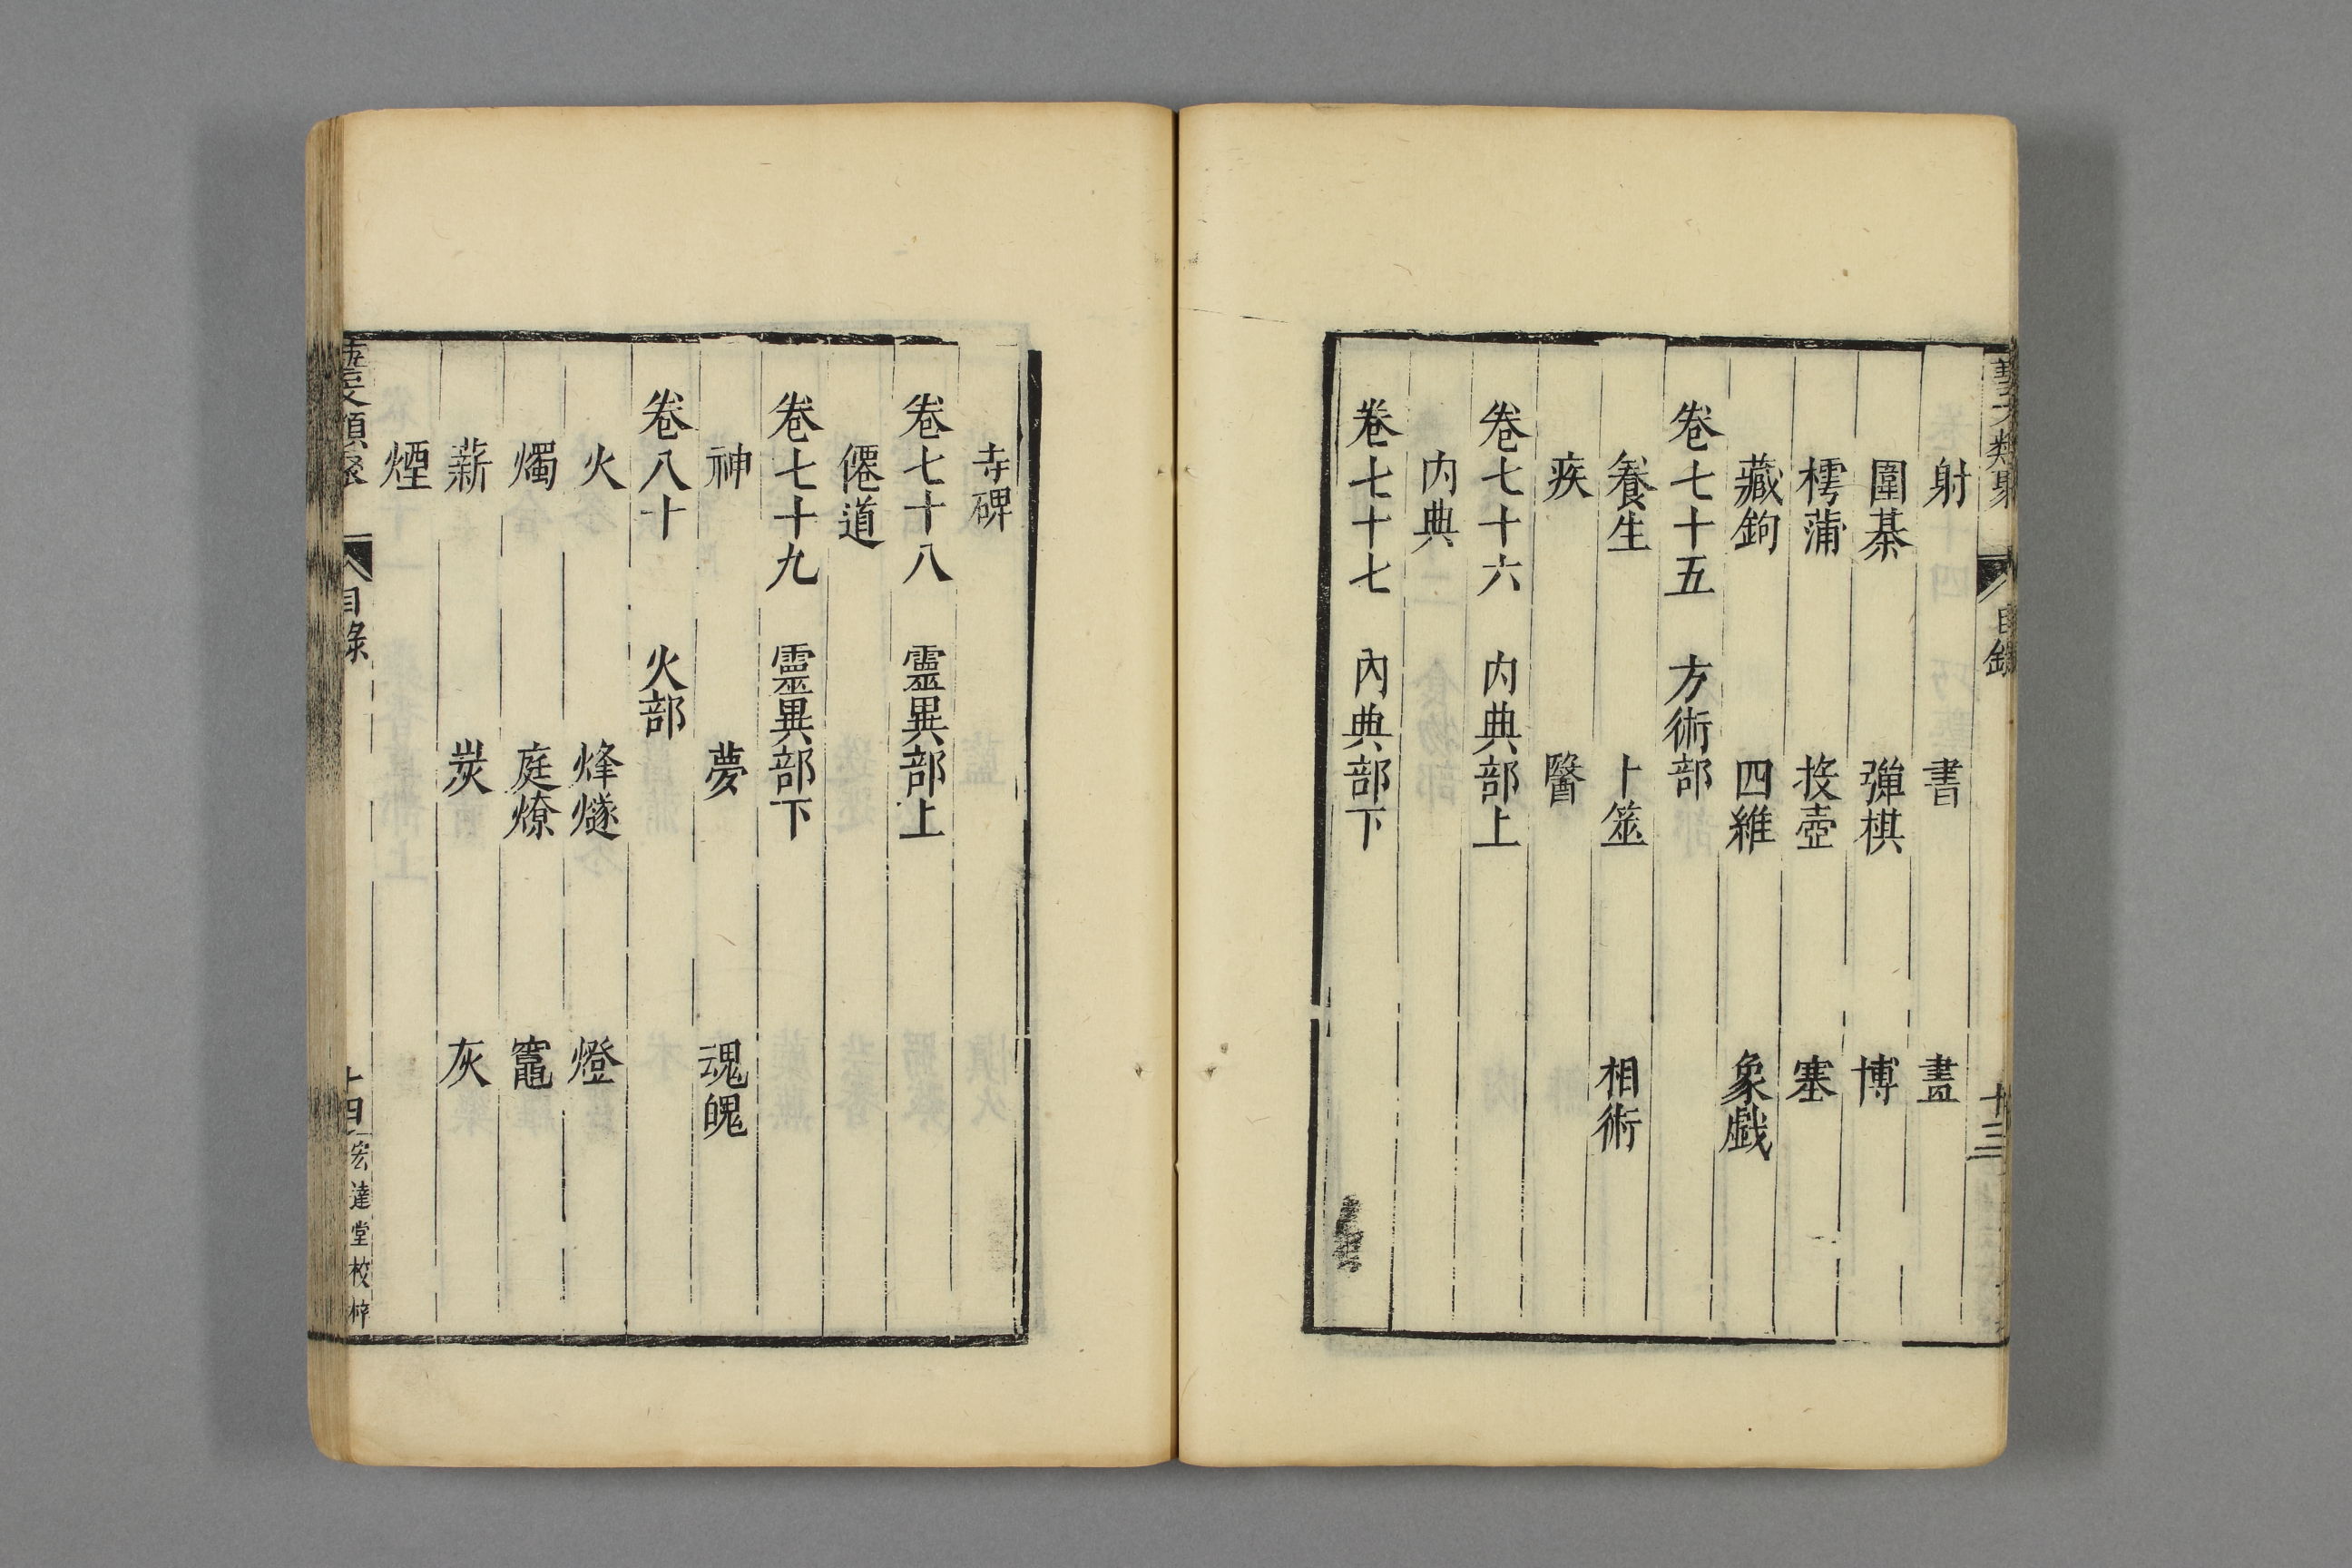 藝文類聚 目錄 十三
射 書 畫
圍棊 彈棋 博
樗蒲 投壺 塞
藏鉤 四維 象戲
卷七十五 方術部
養生 卜筮 相術
疾 醫
內典
卷七十六 內典部上
卷七十七 內典部下
寺碑
卷七十八 靈異部上
僊道
卷七十九 靈異部下
神 夢 魂魄
卷八十 火部
火 烽燧 燈
燭 庭燎 竈
薪 炭 灰
煙
藝文類聚 目錄 十四 宏達堂校梓